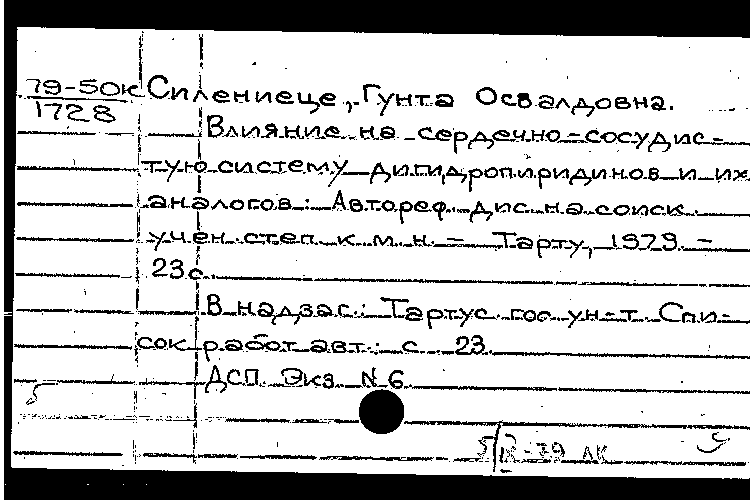 79-50к Силениеце, Гунта Освалдовна.
1728
Влияние на сердечно-сосудис-
тую систему дигидропиридинов и их
аналогов: Автореф. дис. на соиск.
учен. степ. к. м. н. - Тарту, 1979. -
23 с.
В надзаг.: Тартус. гос. ун-т. Спи-
сок работ авт.: с. 23.
ДСП. Экз. N 6
5
5/IX-79 АК